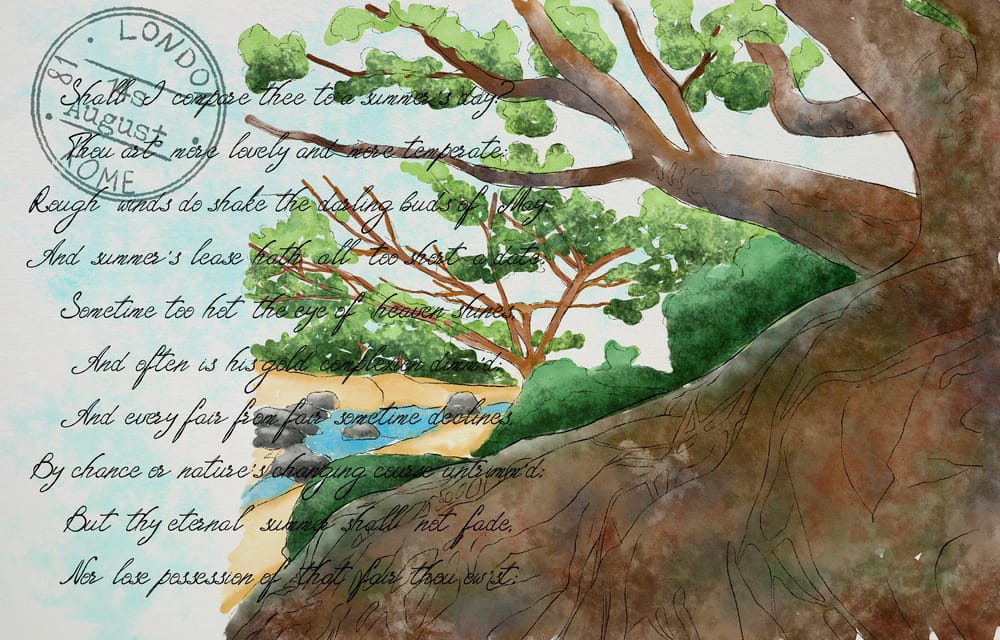 LONDON
18
15
August
ROME
Shall I compare thee to a summer's day?
Thou art more lovely and more temperate:
Rough winds do shake the darling buds of May,
And summer's lease hath all too short a date:
Sometime too hot the eye of heaven shines,
And often is his gold complexion dimm'd;
And every fair from fair sometime declines,
By chance or nature's changing course untrimm'd;
But thy eternal summer shall not fade,
Nor lose possession of that fair thou ow'st;